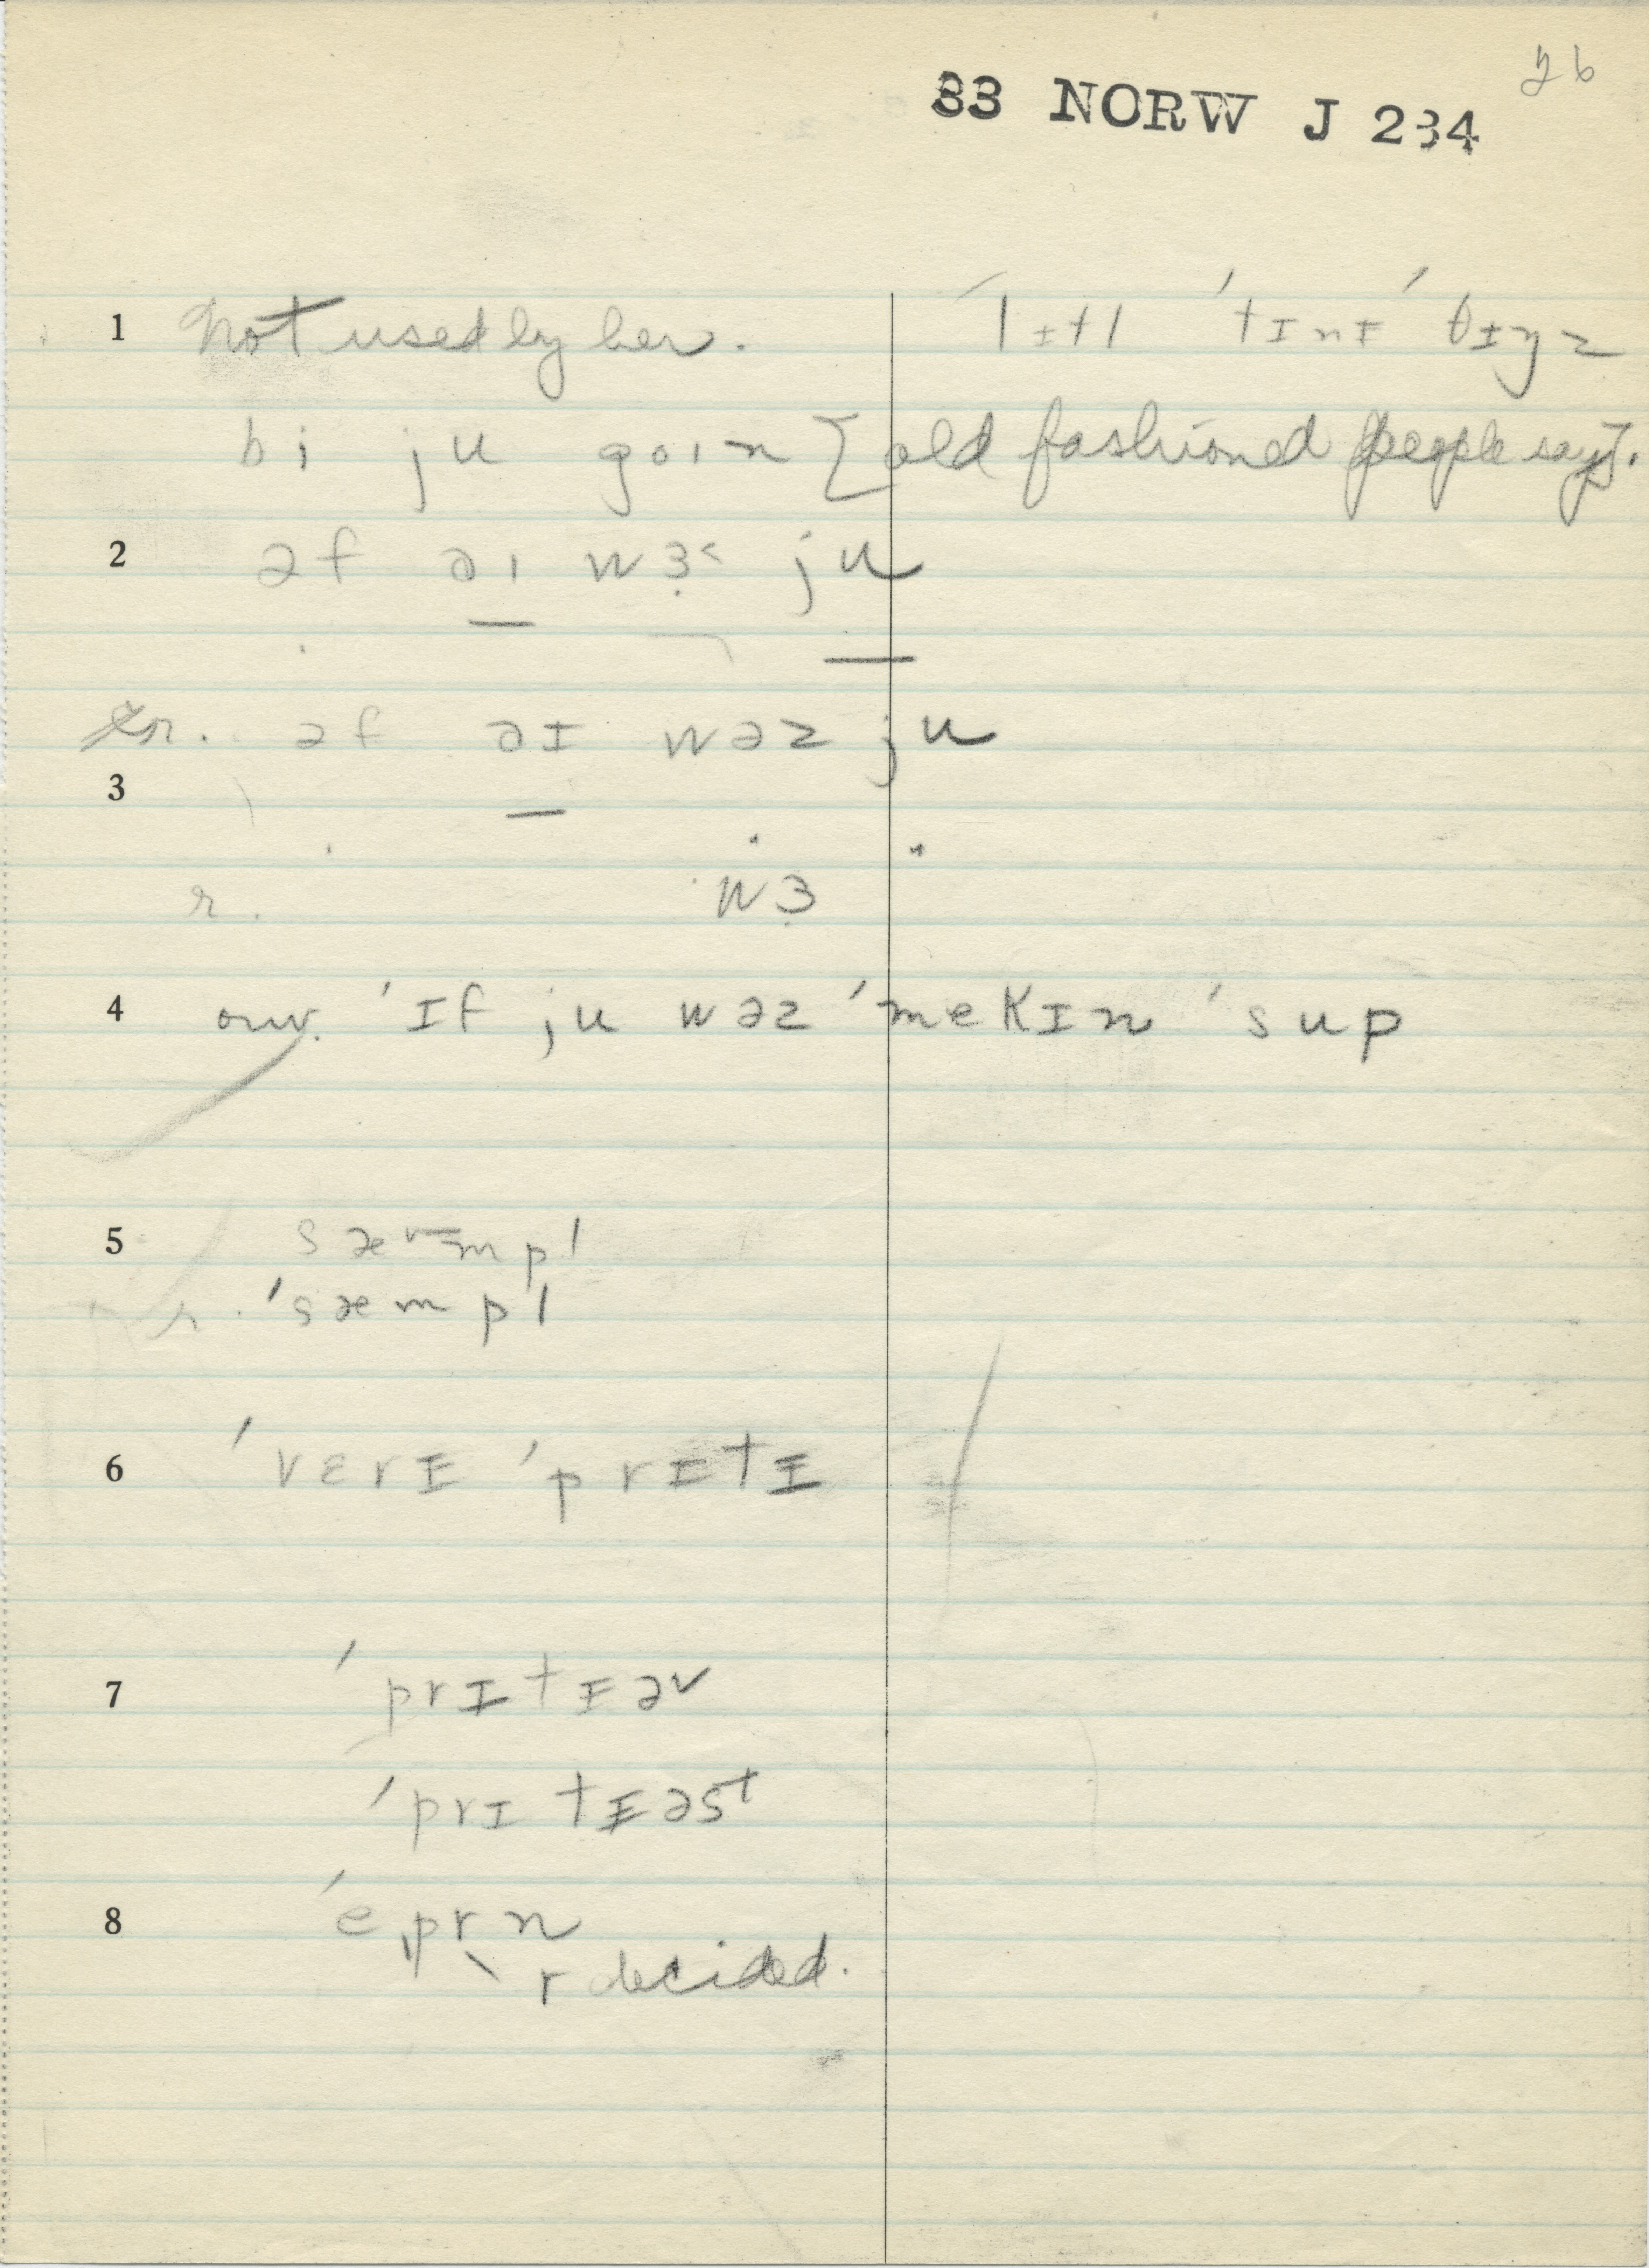 26
33 NORW J 234
1 Not used by her. ˈlɪtl ˈtɪnɪ ˈθɪŋz
bi ju goin [old fashioned people say].
2 əf əɪ wɜ˂ ju
r. əf əɪ wəz ju
3
r. wɜ
4 ˈɪf ju wəz ˈmekɪn ˈsup
5 sæmpl
r. ˈsæmpl
6 ˈvɛrɪ ˈprɪtɪ
7 ˈprɪtɪəv
ˈprɪtɪəst
8 ˈeˌprn
r decided.